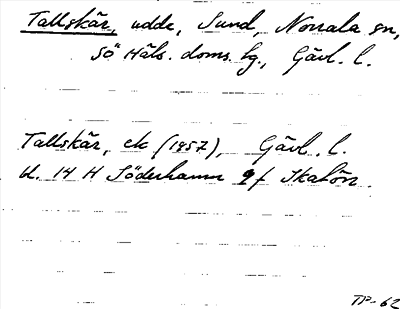 Tallskär, udde, Sund, Norrala sn,
Sö Häls. doms. lg., Gävl. l.
Tallskär, ek (1957), Gävl. l.
bl. 14 H Söderhamn 9f Skatön.
TP-62